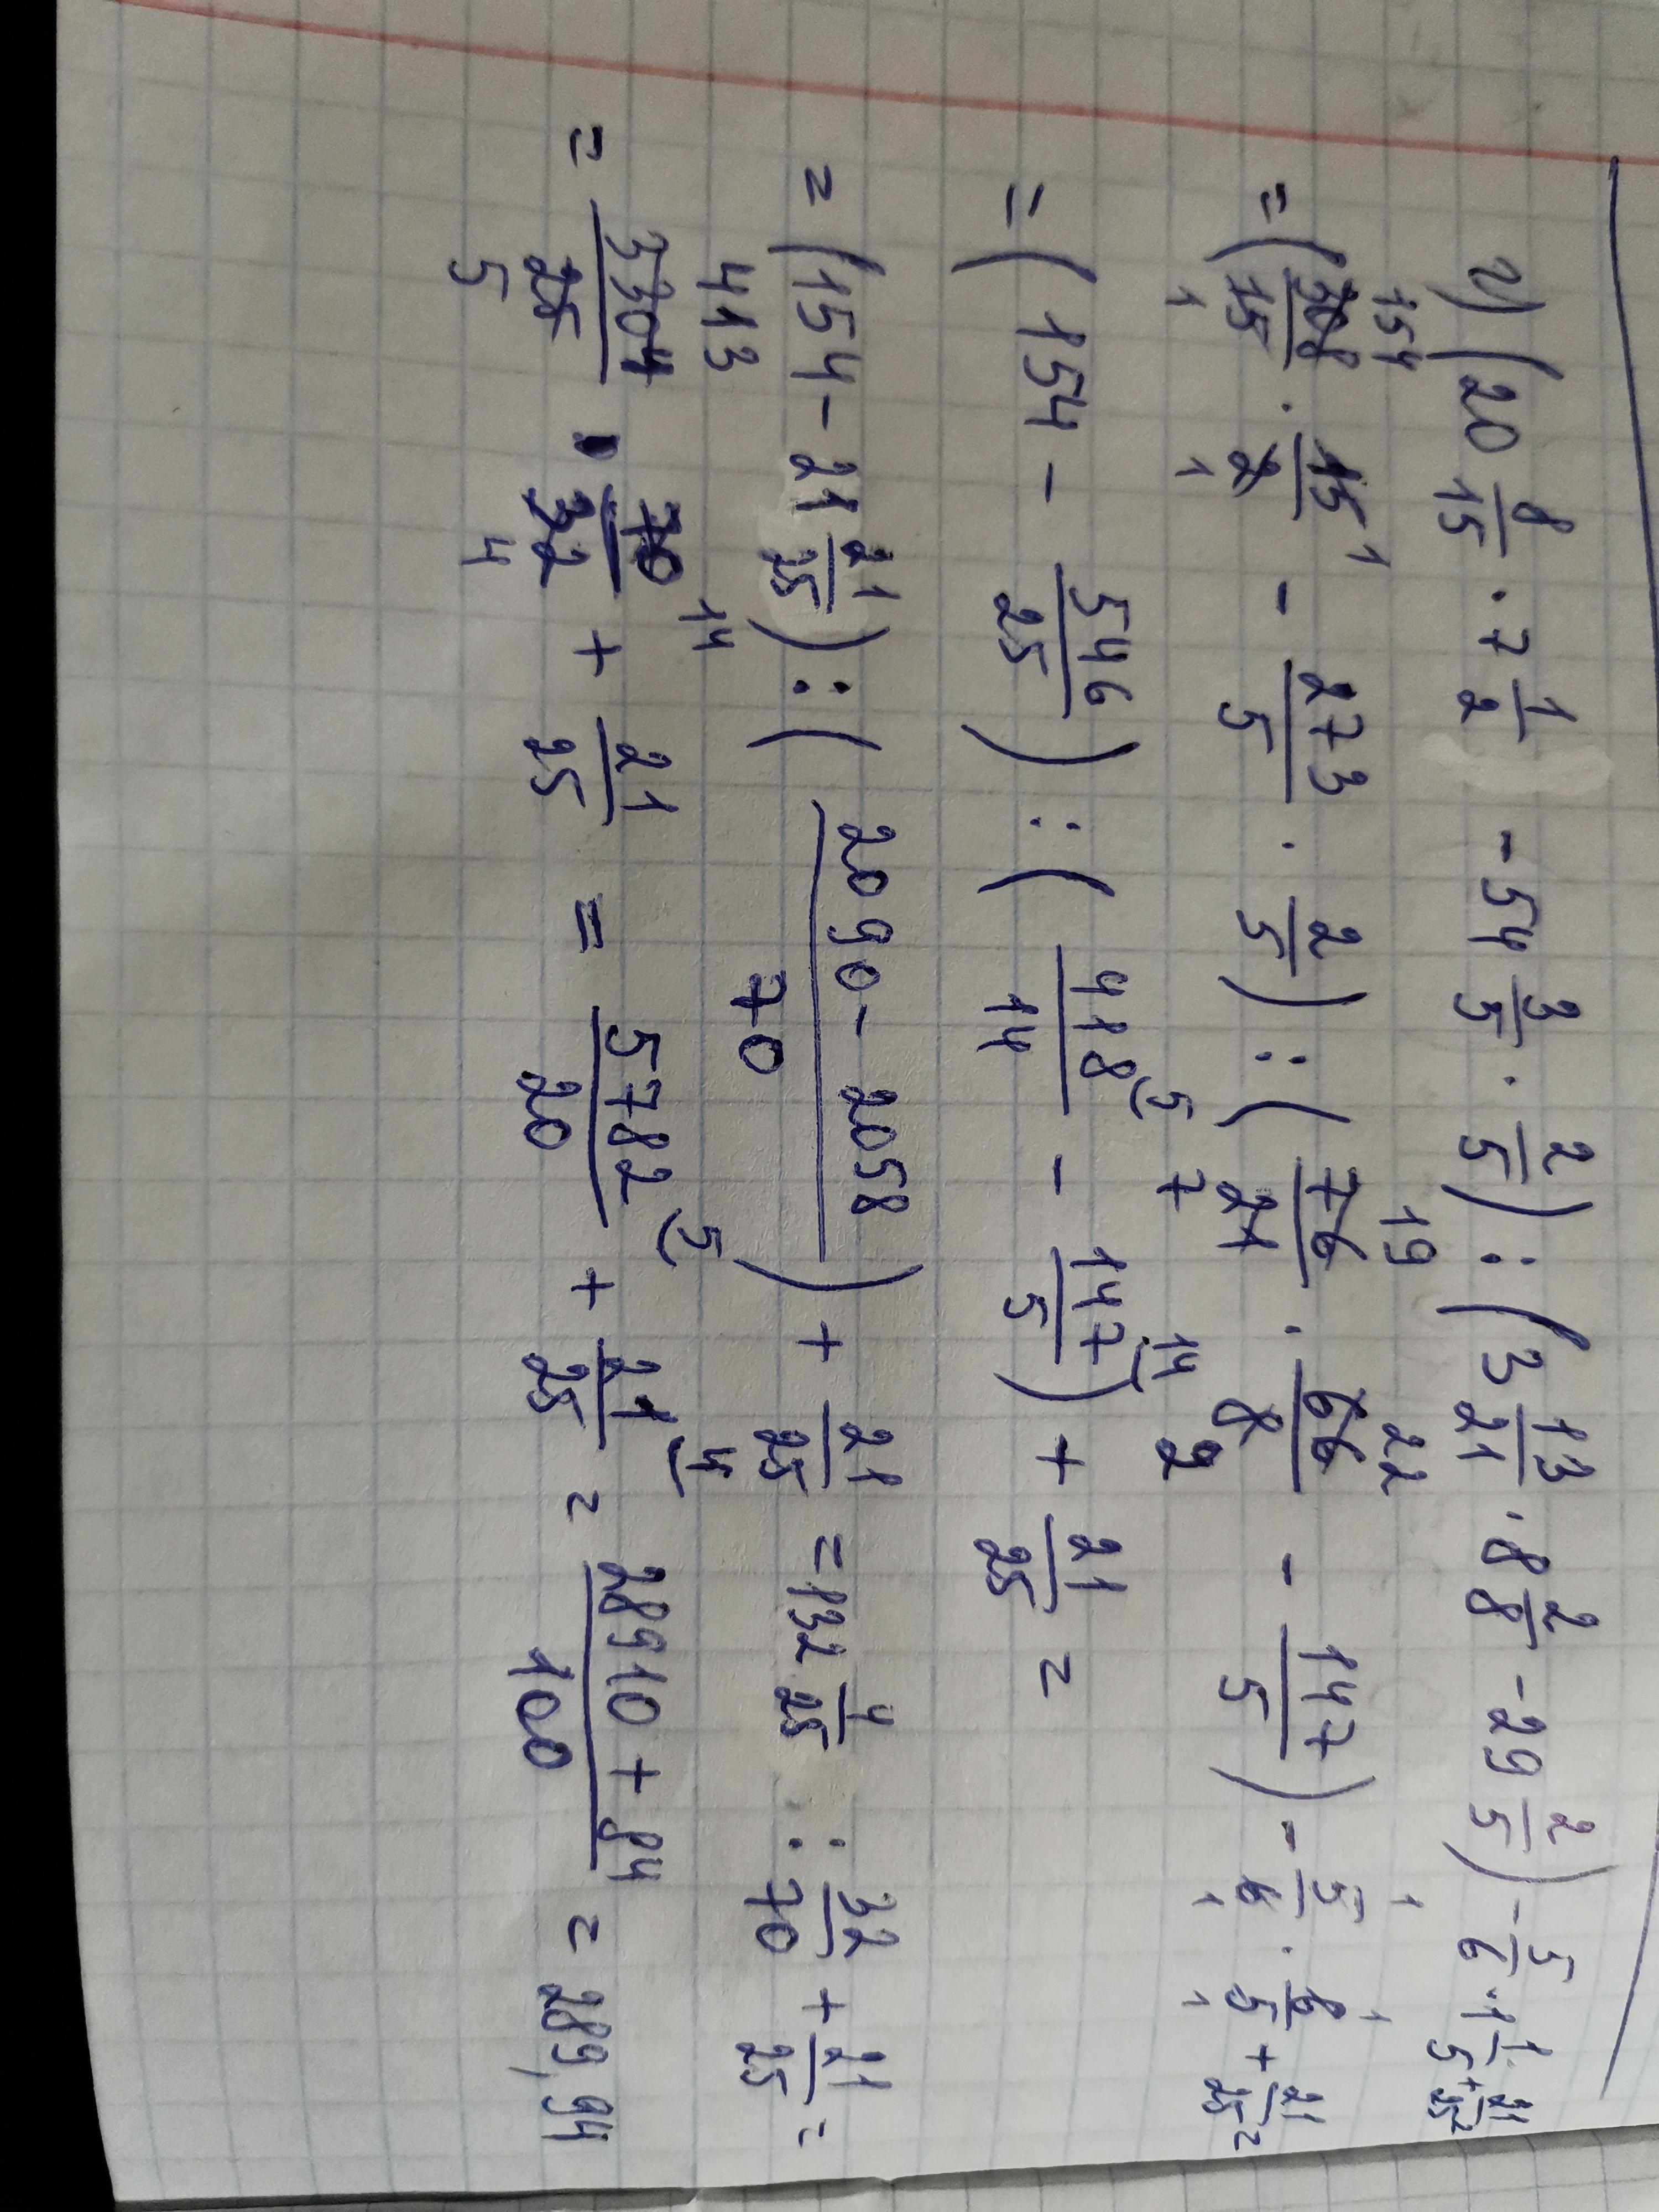 2) (20 8/15 · 7 1/2 - 54 3/5 · 2/5) : (3 13/21 · 8 2/8 - 29 2/5) - 5/6 · 1 1/5 + 21/25 =
= (308/15 · 15/2 - 273/5 · 2/5) : (76/21 · 66/8 - 147/5) - 5/6 · 6/5 + 21/25 =
= (154 - 546/25) : (418/14 - 147/5) + 21/25 =
= (154 - 21 21/25) : (2090 - 2058/70) + 21/25 = 132 4/25 : 32/70 + 21/25 =
= 3304/25 · 70/32 + 21/25 = 5782/20 + 21/25 = 28910 + 84/100 = 289,94